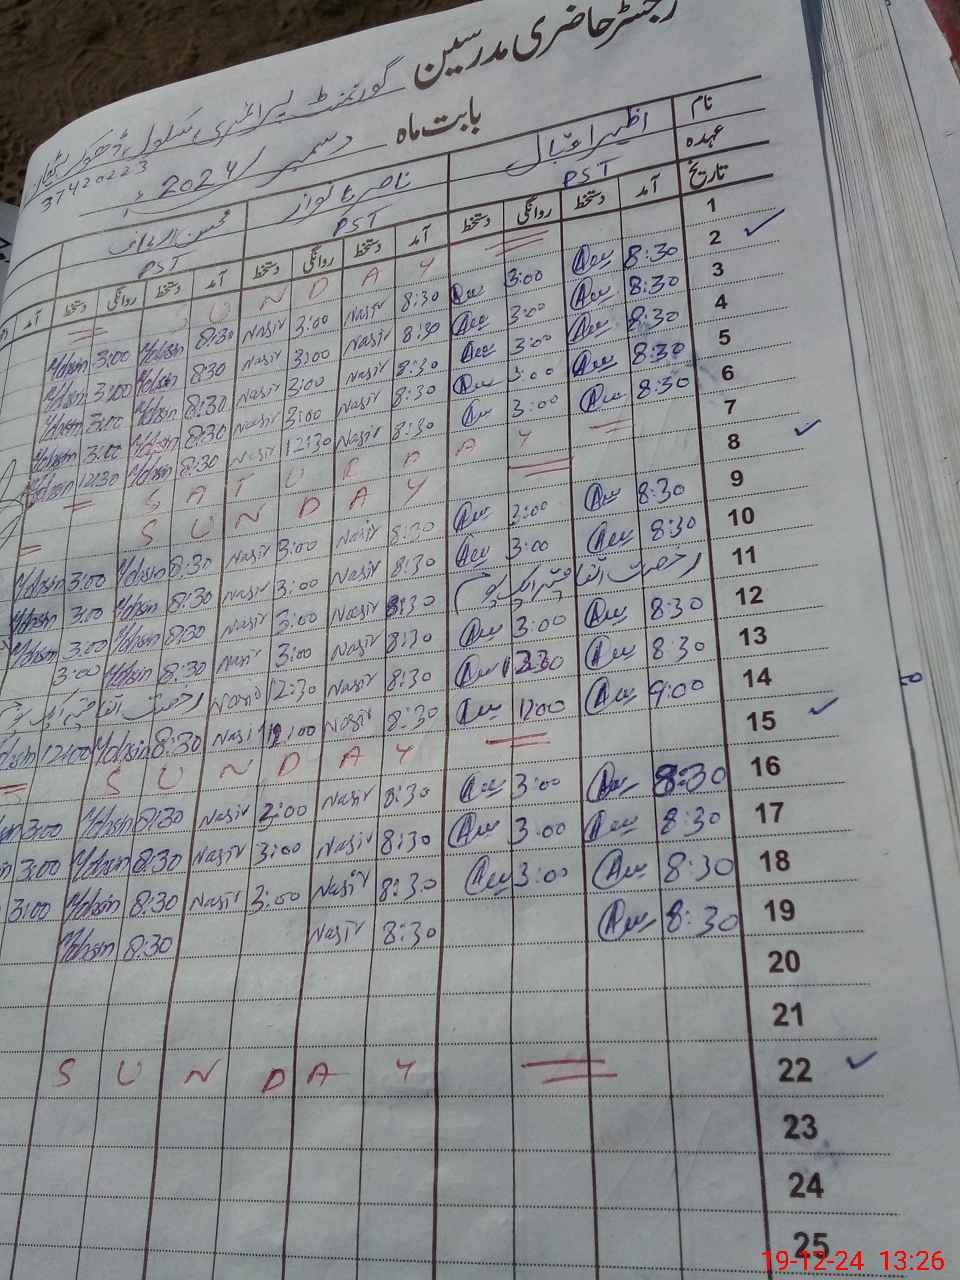 رجسٹر حاضری مدرسین
گورنمنٹ پرائمری سکول ڈھوک
37420223
بابت ماہ دسمبر 2024ء
نام اظہر اقبال ناصر نواز محسن
عہدہ PST PST PST
تاریخ آمد دستخط روانگی دستخط آمد دستخط روانگی دستخط آمد دستخط روانگی دستخط آمد
1 S U N D A Y
2 8:30 3:00 8:30 Nasir 3:00 Nasir 8:30 Mohsin 3:00 Mohsin
3 8:30 3:00 8:30 Nasir 3:00 Nasir 8:30 Mohsin 3:00 Mohsin
4 8:30 3:00 8:30 Nasir 3:00 Nasir 8:30 Mohsin 3:00 Mohsin
5 8:30 3:00 8:30 Nasir 3:00 Nasir 8:30 Mohsin 3:00 Mohsin
6 8:30 3:00 8:30 Nasir 12:30 Nasir 8:30 Mohsin 12:30 Mohsin
7 S A T U R D A Y
8 S U N D A Y
9 8:30 3:00 8:30 Nasir 3:00 Nasir 8:30 Mohsin 3:00 Mohsin
10 8:30 3:00 8:30 Nasir 3:00 Nasir 8:30 Mohsin 3:00 Mohsin
11 رخصت اتفاقیہ ایک یوم 8:30 Nasir 3:00 Nasir 8:30 Mohsin 3:00 Mohsin
12 8:30 3:00 8:30 Nasir 3:00 Nasir 8:30 Mohsin 3:00
13 8:30 8:30 Nasir 12:30 Nasir رخصت اتفاقیہ ایک یوم
14 9:00 8:30 Nasir Nasir 8:30 Mohsin 12:00
15 S U N D A Y
16 8:30 3:00 8:30 Nasir 3:00 Nasir 8:30 Mohsin 3:00
17 8:30 3:00 8:30 Nasir 3:00 Nasir 8:30 Mohsin 3:00
18 8:30 3:00 8:30 Nasir 3:00 Nasir 8:30 Mohsin 3:00
19 8:30 8:30 Nasir 8:30 Mohsin
20
21
22 S U N D A Y
23
24
25
19-12-24 13:26